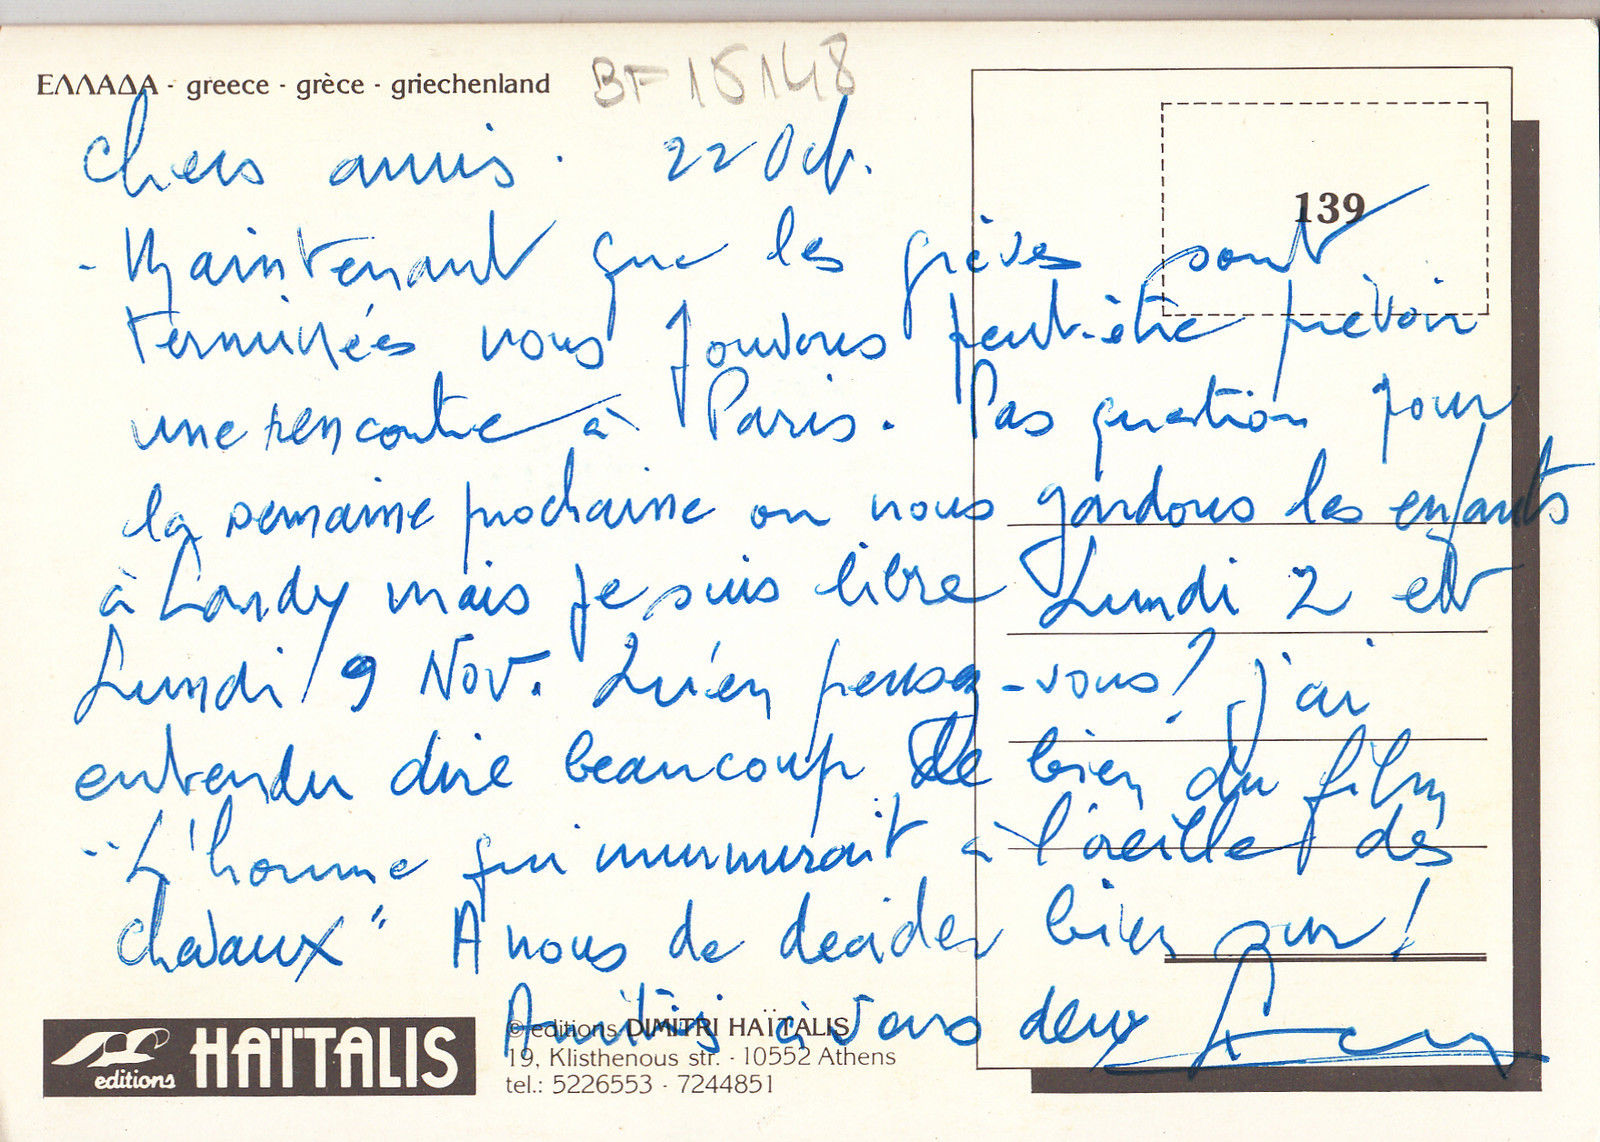 ΕΛΛΑΔΑ - greece - grèce - griechenland
BF 15148
139
Chers amis. 22 Oct.
- Maintenant que les grèves sont
terminées nous pouvons peut-être prévoir
une rencontre à Paris. Pas question pour
la semaine prochaine où nous gardons les enfants
à Lardy mais je suis libre Lundi 2 et
Lundi 9 Nov. Qu'en pensez-vous? J'ai
entendu dire beaucoup de bien du film
"L'homme qui murmurait à l'oreille des
chevaux" A nous de decider bien sur!
Amitiés à vous deux
editions HAÏTALIS
© editions DIMITRI HAÏTALIS
19, Klisthenous str. - 10552 Athens
tel.: 5226553 - 7244851